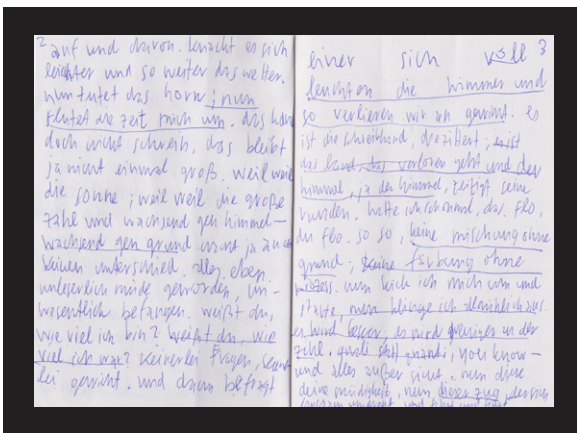 2
auf und davon. macht es sich
leichter und so weiter das wetter.
nun tutet das horn; nun
flutet die zeit mich um. das kann
doch nicht schwein, das bleibt
ja nicht einmal groß. weil weil
die sonne; weil weil die große
zahl und wachsend gen himmel –
wachsend gen grund macht ja auch
keinen unterschied, alles eben
unleserlich müde geworden, un-
wesentlich befangen. weißt du,
wie viel ich bin? weißt du, wie
viel ich war? keinerlei fragen, keiner-
lei gewicht. und dann befragt
3
einer sich voll
leuchten die himmel und
so verlieren wir an gewicht. es
ist die schreibhand, die zittert; es ist
das land, das verloren geht und der
himmel, ja der himmel, seine
runden. hatte ich schonmal, das. flo,
du flo. so so, keine mischung ohne
grund; keine färbung ohne
um und
starte, nun klinge ich allmählich aus.
es wird besser; es wird an der
zahl. quasi statt quanti, you know –
und alles außer sinnt. nun diese
deine müdigkeit, nun dieser zug, der sich